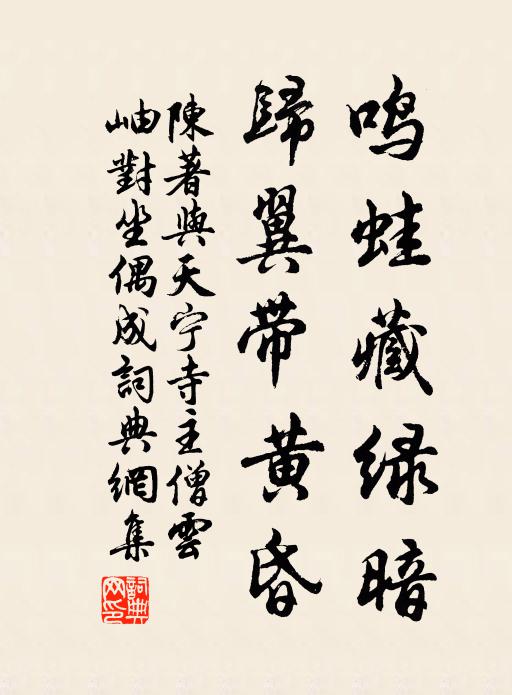 鸣蛙藏绿暗
歸翼带黄昏
陳著與天宁寺主僧雲
岫對坐偶成詞典網集
詞典網印